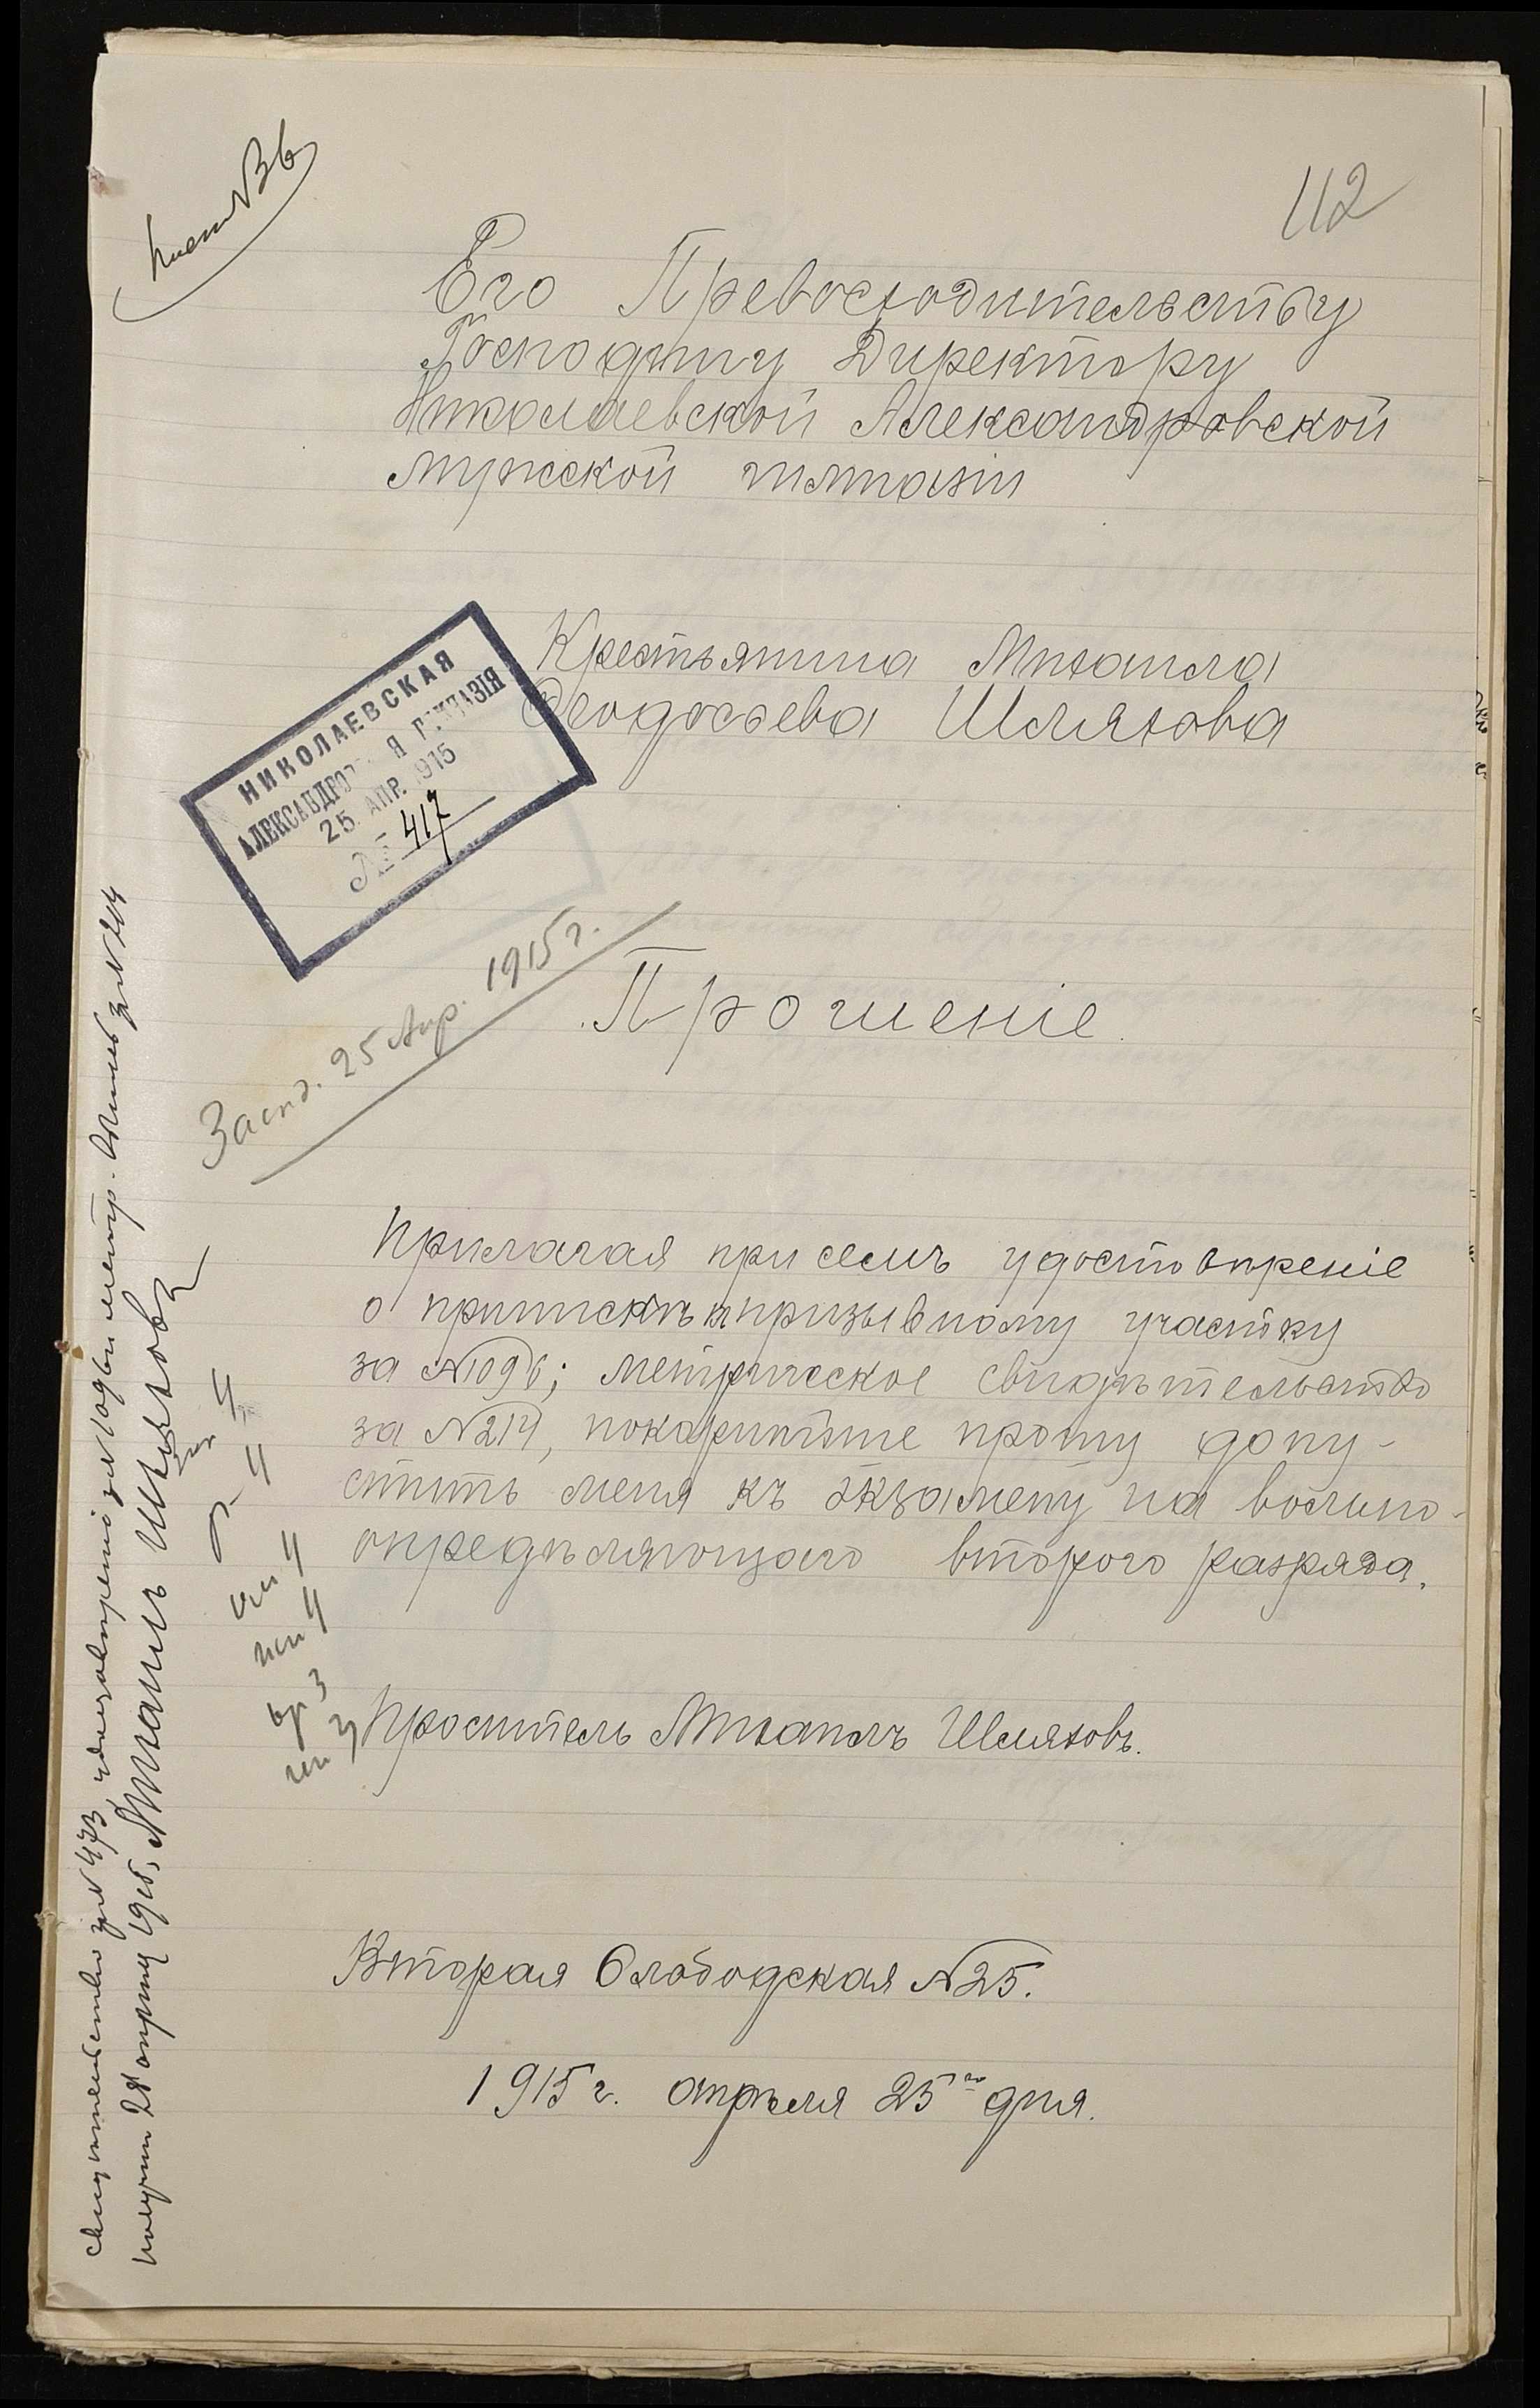 112
Его Превосходительству
Господину Директору
Николаевской Александровской
мужской гимназіи
Крестьянина Михаила
Феодосьева Шляхова
НИКОЛАЕВСКАЯ
АЛЕКСАНДРОВ Я ГИМНАЗІЯ
25. АПР. 1915
№ 417
25 Апр. 1915 г.
Прошеніе.
Прилагая при семъ удостовѣреніе
о припискѣ къ призывному участку
за №1096; метрическое свидѣтельство
за №214, покорнѣйше прошу допу-
стить меня къ экзамену на вольно-
опредѣляющаго второго разряда.
Проситель Михаилъ Шляховъ.
Вторая Слободская №25.
1915 г. апрѣля 25го дня.
Свидетельство за №473, удостовѣреніе за №1096 и метр. за №214
получилъ 28 апрѣля 1915 г. Михаилъ Шляховъ
4
4
4
4
3
3